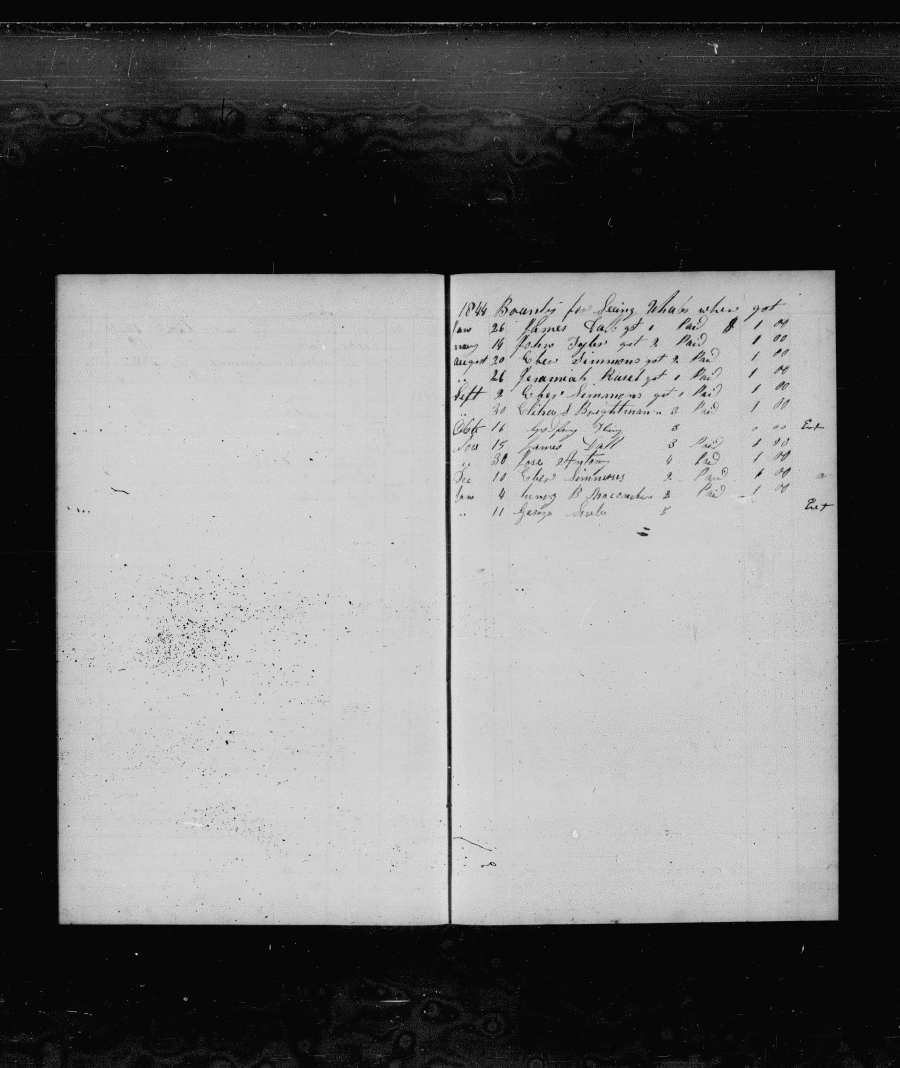 1844 Bounty for Seeing Whales when got
Jan 26 James Ball got 1 Paid $ 1 00
may 14 John Tyler got 2 Paid 1 00
august 20 Eber Simmons got 2 Paid 1 00
" 26 Jeramiah Rusel got 1 Paid 1 00
Sept 2 Eber Simmons got 1 Paid 1 00
" 30 Elihu S Brightman " 3 Paid 1 00
Octb 16 3 0 00
Nov 15 James Ball 3 Paid 1 00
" 30 Jose Antony 4 Paid 1 00
Dec 10 Eber Simmons 2 Paid 1 00
Jan 4 henry B Macomber 3 Paid 1 00
" 11 George